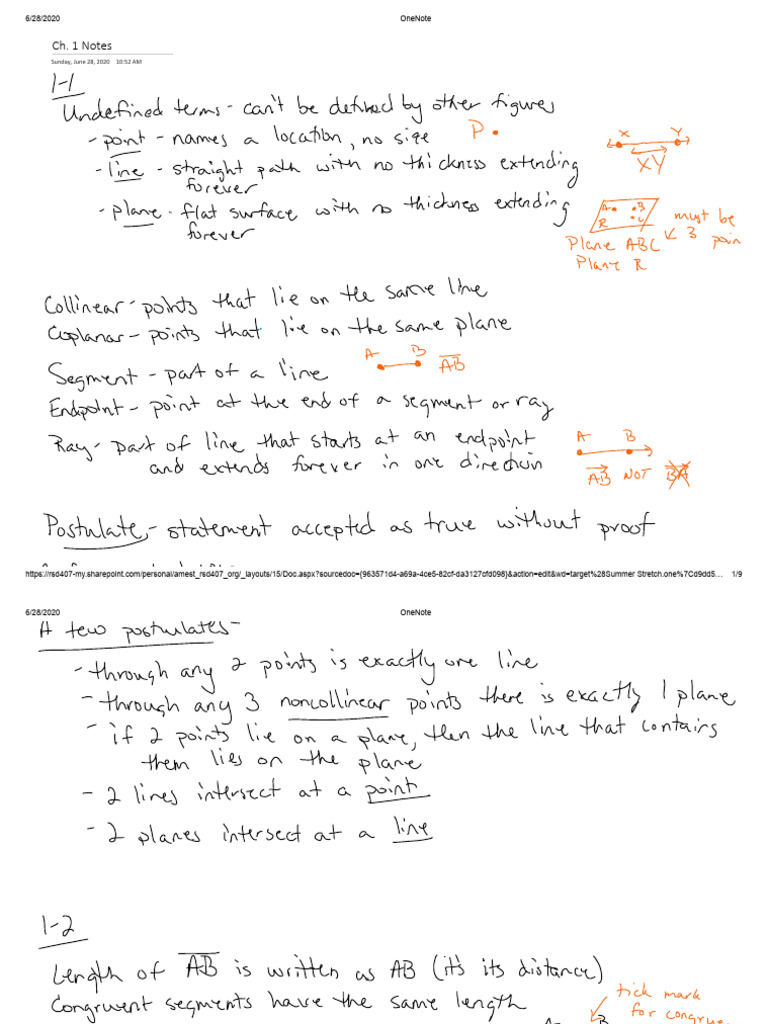 6/28/2020 OneNote
Ch. 1 Notes
Sunday, June 28, 2020 10:52 AM
1-1
Undefined terms - can't be defined by other figures
- point - names a location, no size P
- line - straight path with no thickness extending
forever
X Y
XY
- plane - flat surface with no thickness extending
forever
A B
R C
Plane ABC must be
3 poin
Plane R
Collinear - points that lie on the same line
Coplanar - points that lie on the same plane
Segment - part of a line A B AB
Endpoint - point at the end of a segment or ray
Ray - part of line that starts at an endpoint A B
and extends forever in one direction AB NOT BA
Postulate - statement accepted as true without proof
https://rsd407-my.sharepoint.com/personal/amest_rsd407_org/_layouts/15/Doc.aspx?sourcedoc={963571d4-a69a-4ce5-82cf-da3127cfd098}&action=edit&wd=target%28Summer Stretch.one%7Cd9dd5… 1/9
6/28/2020 OneNote
A few postulates -
- through any 2 points is exactly one line
- through any 3 noncollinear points there is exactly 1 plane
- if 2 points lie on a plane, then the line that contains
them lies on the plane
- 2 lines intersect at a point
- 2 planes intersect at a line
1-2
Length of AB is written as AB (it's its distance)
Congruent segments have the same length
tick mark
for congrue
A B